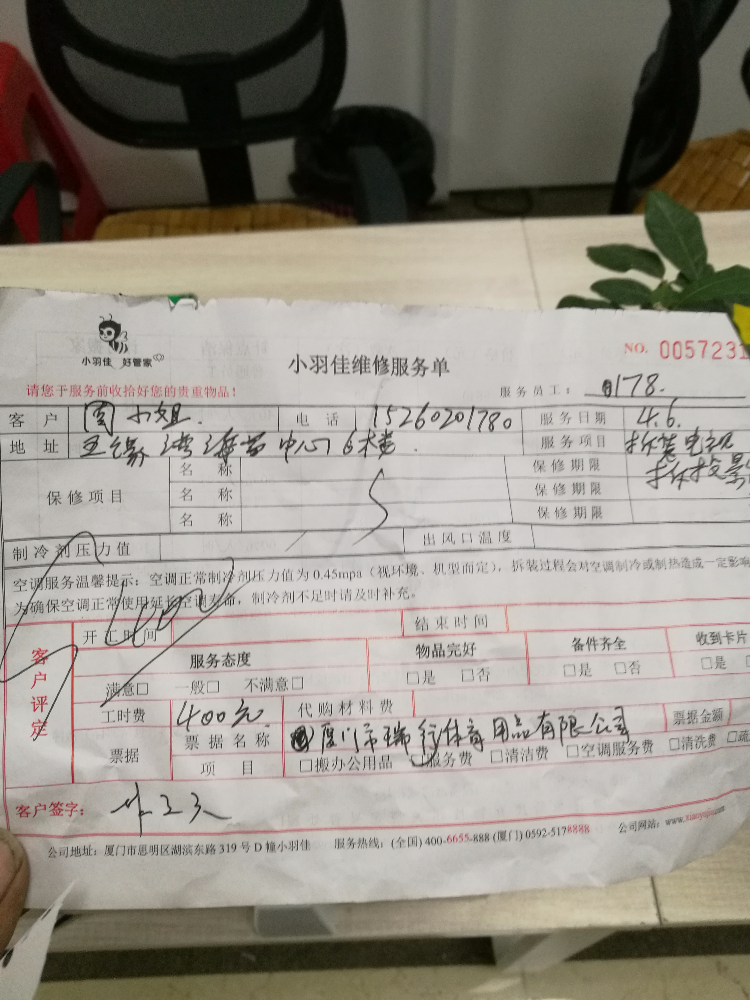 小羽佳 好管家
小羽佳维修服务单
NO. 0057231
请您于服务前收拾好您的贵重物品！
服务员工： 0178.
客 户 周小姐. 电 话 15260201780 服务日期 4.6.
地 址 中心6楼. 服务项目 拆装电视
拆投影
保修项目 名 称 保修期限
名 称 保修期限
名 称 保修期限
制冷剂压力值 出风口温度
空调服务温馨提示：空调正常制冷剂压力值为 0.45mpa（视环境、机型而定），拆装过程会对空调制冷或制热造成一定影响
为确保空调正常使用延长空调寿命，制冷剂不足时请及时补充。
客户评定
开工时间 结束时间
服务态度 物品完好 备件齐全 收到卡片
满意□ 一般□ 不满意□ □是 □否 □是 □否 □是
工时费 400元. 代购材料费
票据 票据名称 厦门市瑞行体育用品有限公司 票据金额
项 目 □搬办公用品 服务费 □清洁费 □空调服务费 □清洗费 □疏
客户签字：
公司地址：厦门市思明区湖滨东路 319 号 D 幢小羽佳 服务热线：(全国) 400-6655-888 (厦门) 0592-5178888 公司网站：